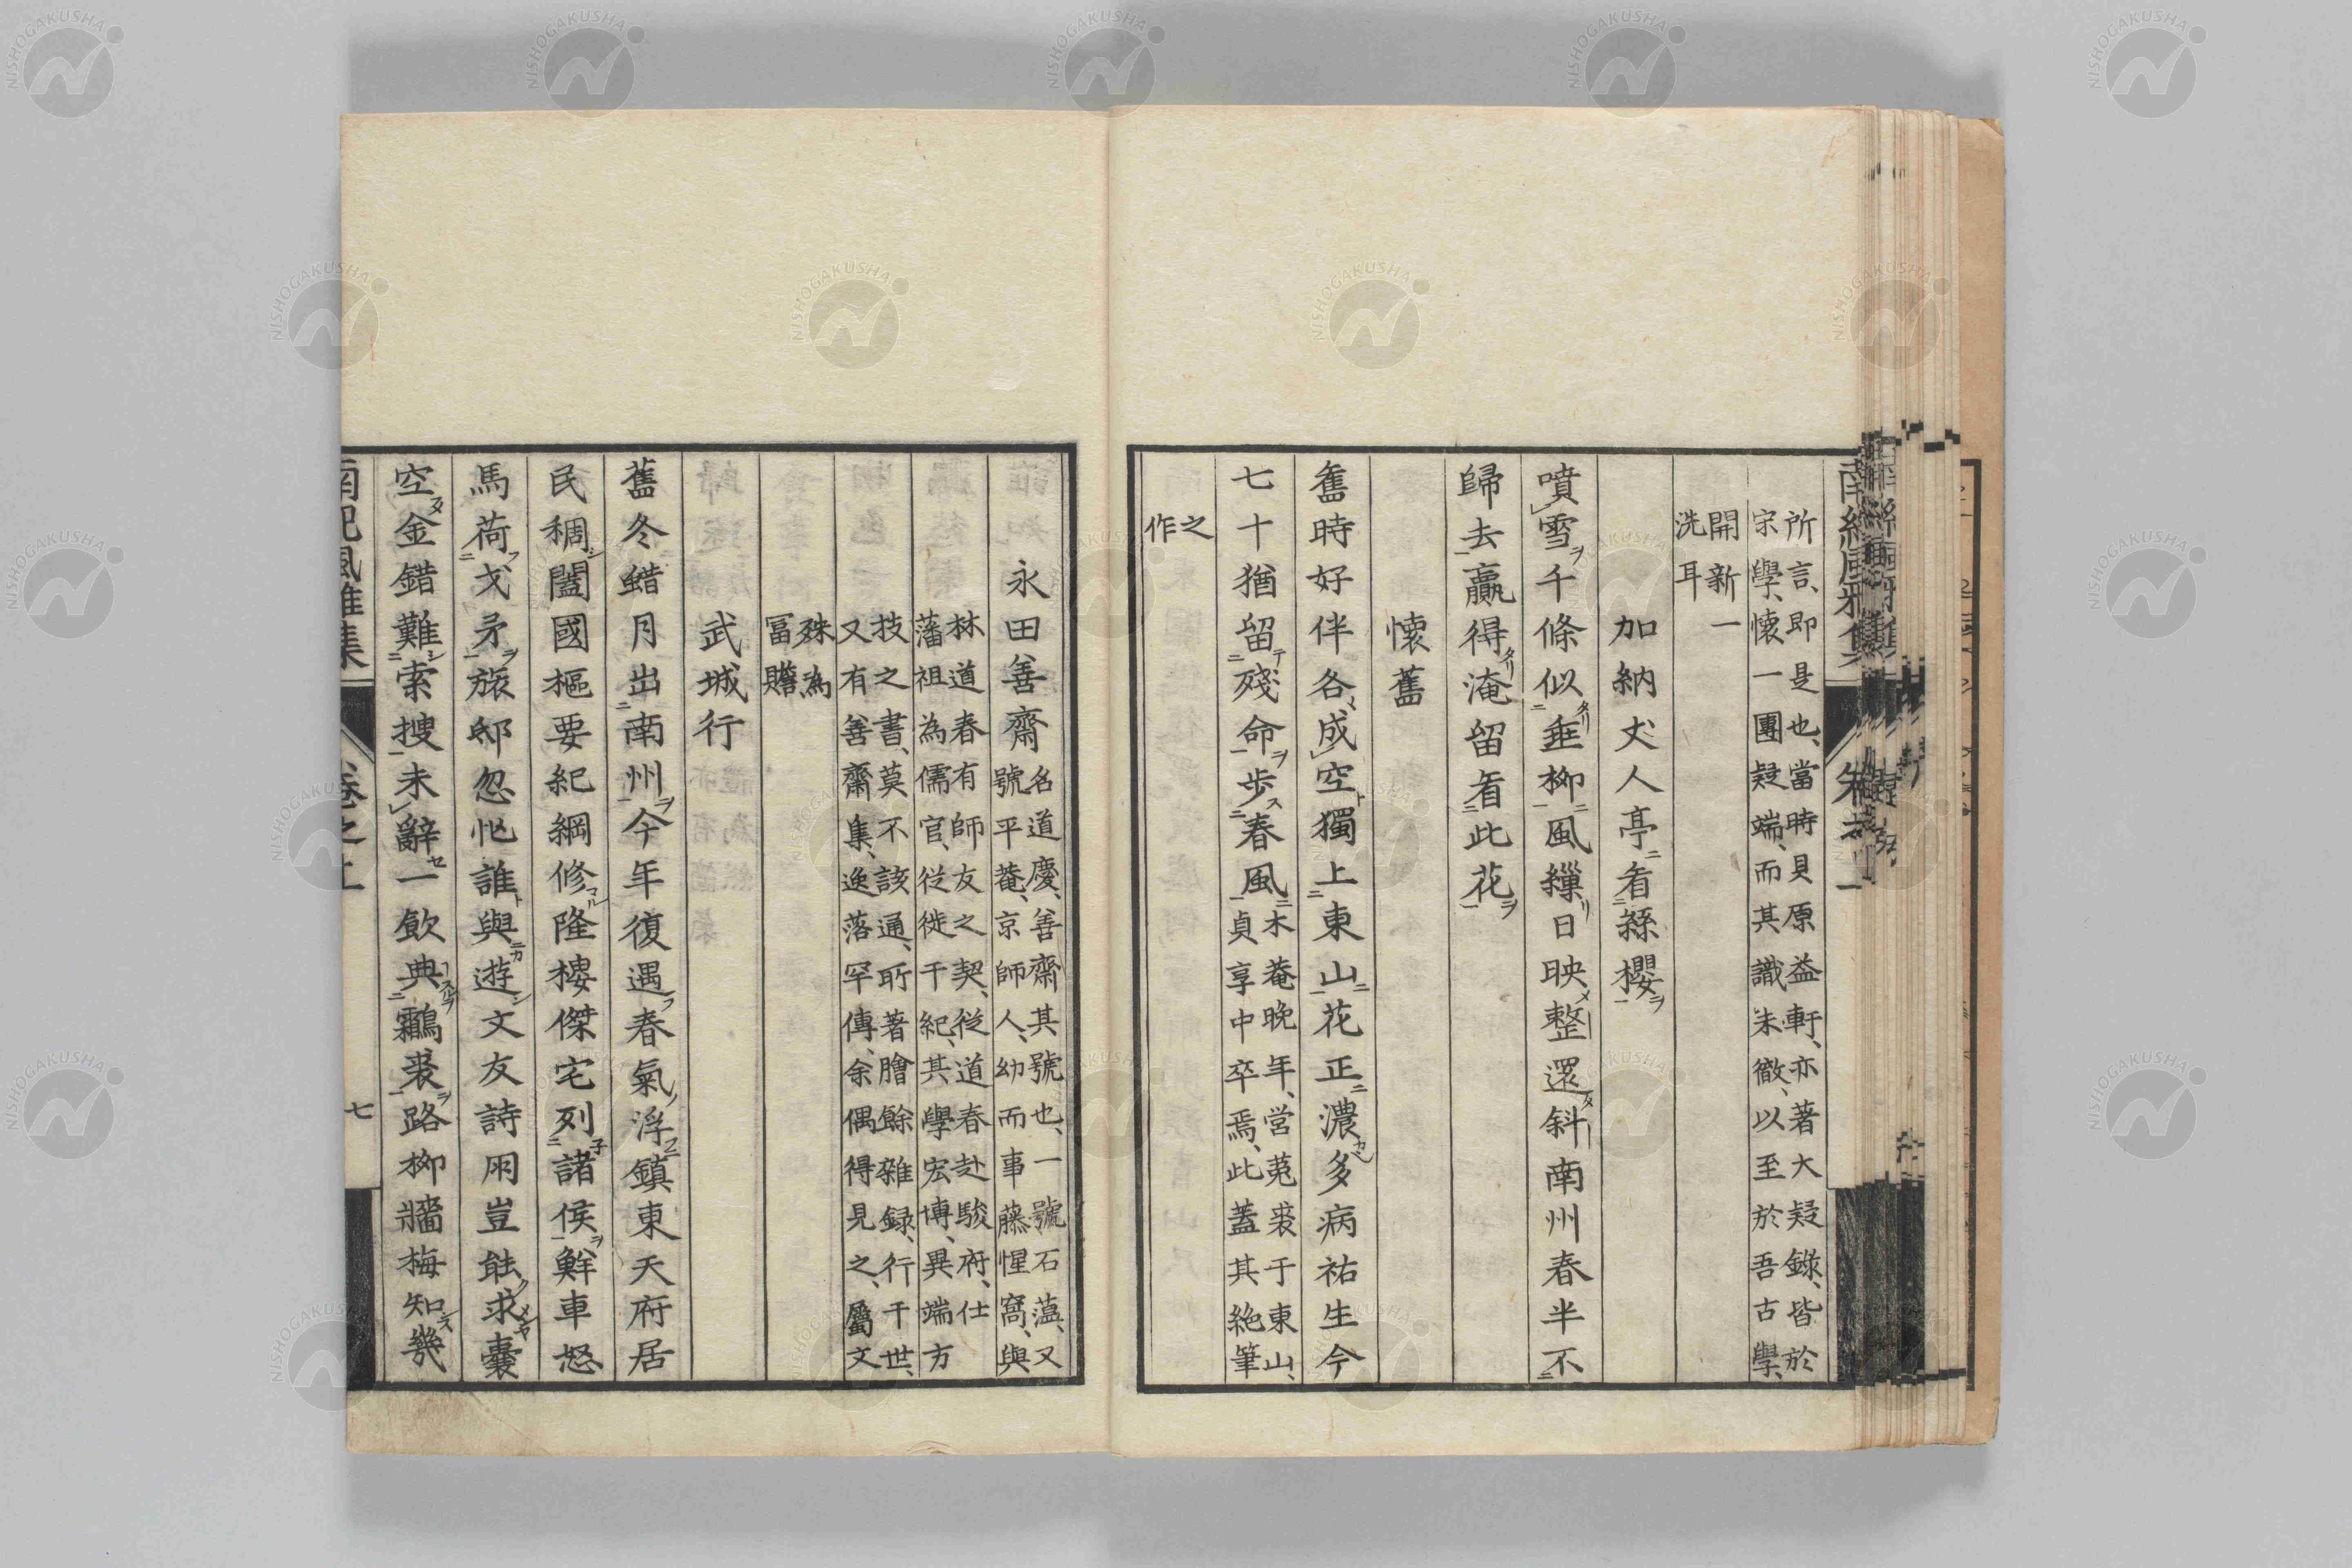 所言、即是也、當時貝原益軒、亦著大疑錄、皆於
宋學、懷一團疑端、而其識未徹、以至於吾古學、
開新一
洗耳
加納丈人亭看絲櫻
噴雪千條似垂柳風繅日映整還斜南州春半不
歸去贏得淹留看此花
懷舊
舊時好伴各成空獨上東山花正濃多病祐生今
七十猶留殘命步春風
木菴晚年、営菟裘于東山、
貞享中卒焉、此蓋其絶筆
之
作
永田善齋
名道慶、善齋其號也、一號石薀、又
號平菴、京師人、幼而事藤惺窩、與
林道春有師友之契、從道春赴駿府、仕
藩祖為儒官、從徙于紀、其學宏博、異端方
技之書、莫不該通、所著膾餘雜録、行于世、
又有善齋集、逸落罕傳、余偶得見之、屬文
殊為
冨贍
武城行
舊冬蜡月出南州今年復遇春氣浮鎮東天府居
民稠闔國樞要紀綱修隆樓傑宅列諸侯鮮車怒
馬荷戈矛旅邸忽忙誰與遊文友詩朋豈能求囊
空金錯難索搜未辭一飲典鸘裘路柳牆梅知幾
南紀風雅集
卷之上
七